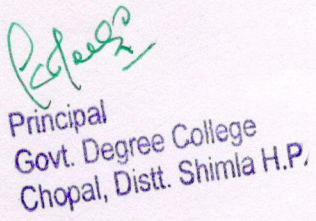 Principal
Govt. Degree College
Chopal, Distt. Shimla H.P.